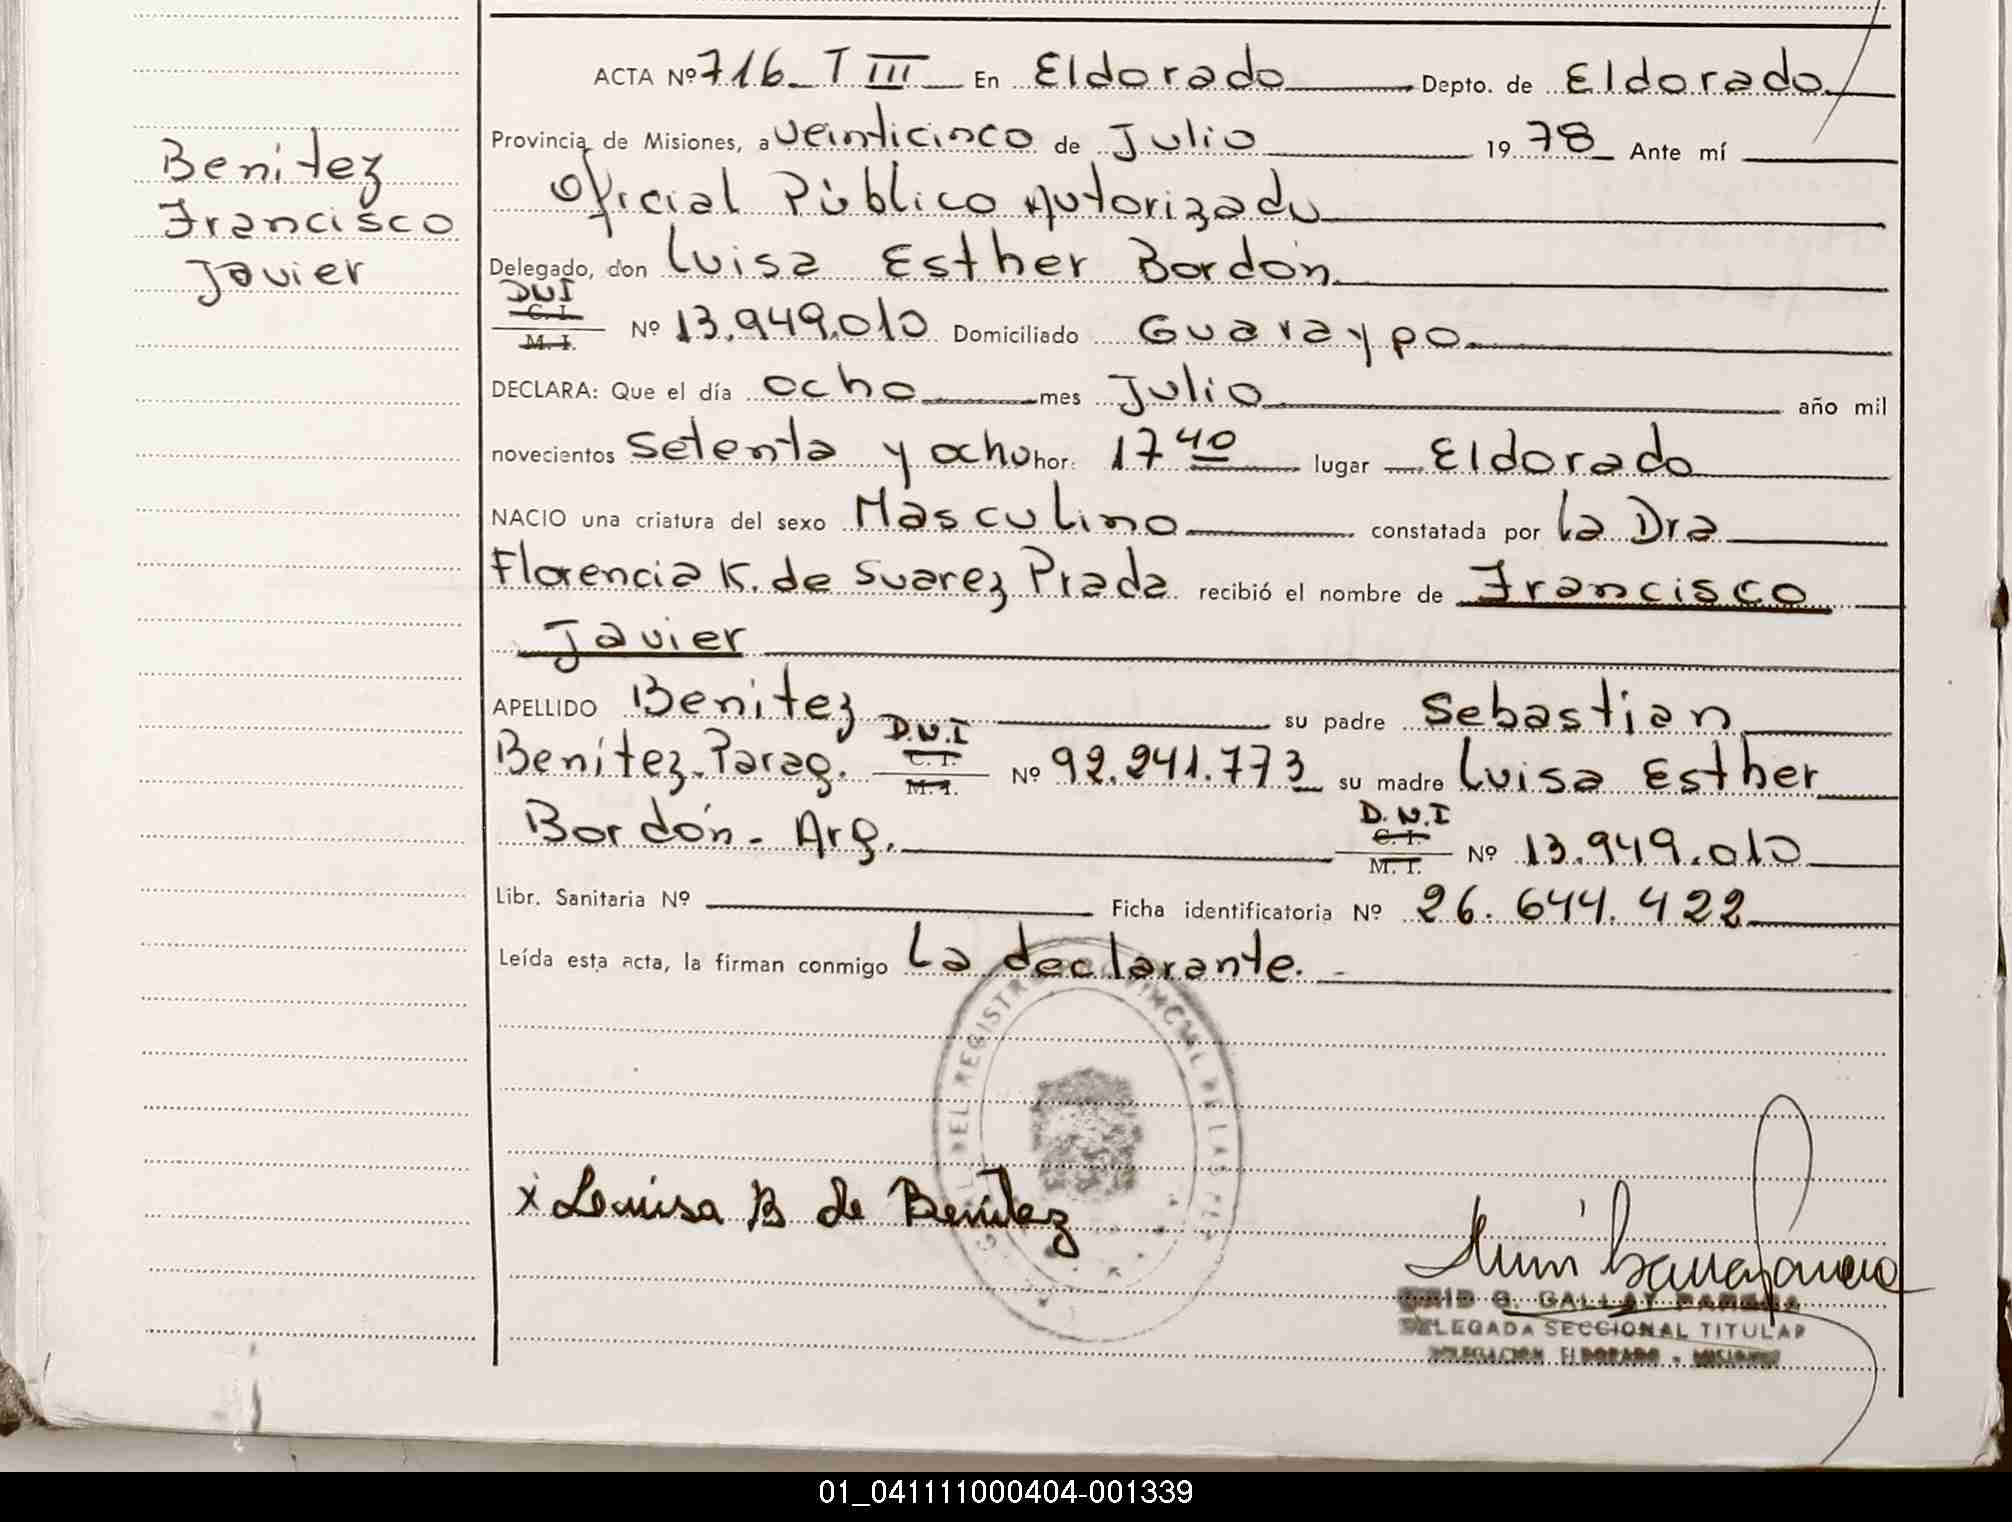 ACTA Nº 716 T III En Eldorado Depto. de Eldorado
Provincia de Misiones, a veinticinco de Julio 1978 Ante mí
Oficial Público Autorizado
Benitez
Francisco
Javier
Delegado, don Luisa Esther Bordón
DNI
C. I.
M. I.
Nº 13.949.010 Domiciliado Guaraypo
DECLARA: Que el día ocho mes Julio año mil
novecientos setenta y ocho hor. 17 40 lugar Eldorado
NACIO una criatura del sexo Masculino constatada por la Dra
Florencia K. de Suarez Prada recibió el nombre de Francisco
Javier
APELLIDO Benitez su padre Sebastian
Benítez. Parag. D.N.I C. I. M. I. Nº 92.241.773 su madre Luisa Esther
Bordón - Arg. D.N.I C. I. M. I. Nº 13.949.010
Libr. Sanitaria Nº Ficha identificatoria Nº 26.644.422
Leída esta acta, la firman conmigo la declarante. -
DEL REGISTRO PROVINCIAL DE LAS
x Louisa B de Benítez
G. GALLAY PAREDA
DELEGADA SECCIONAL TITULAR
DELEGACION ELDORADO - MISIONES
01_041111000404-001339